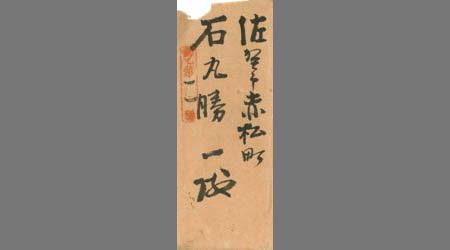 佐賀市赤松町
石丸勝一殿